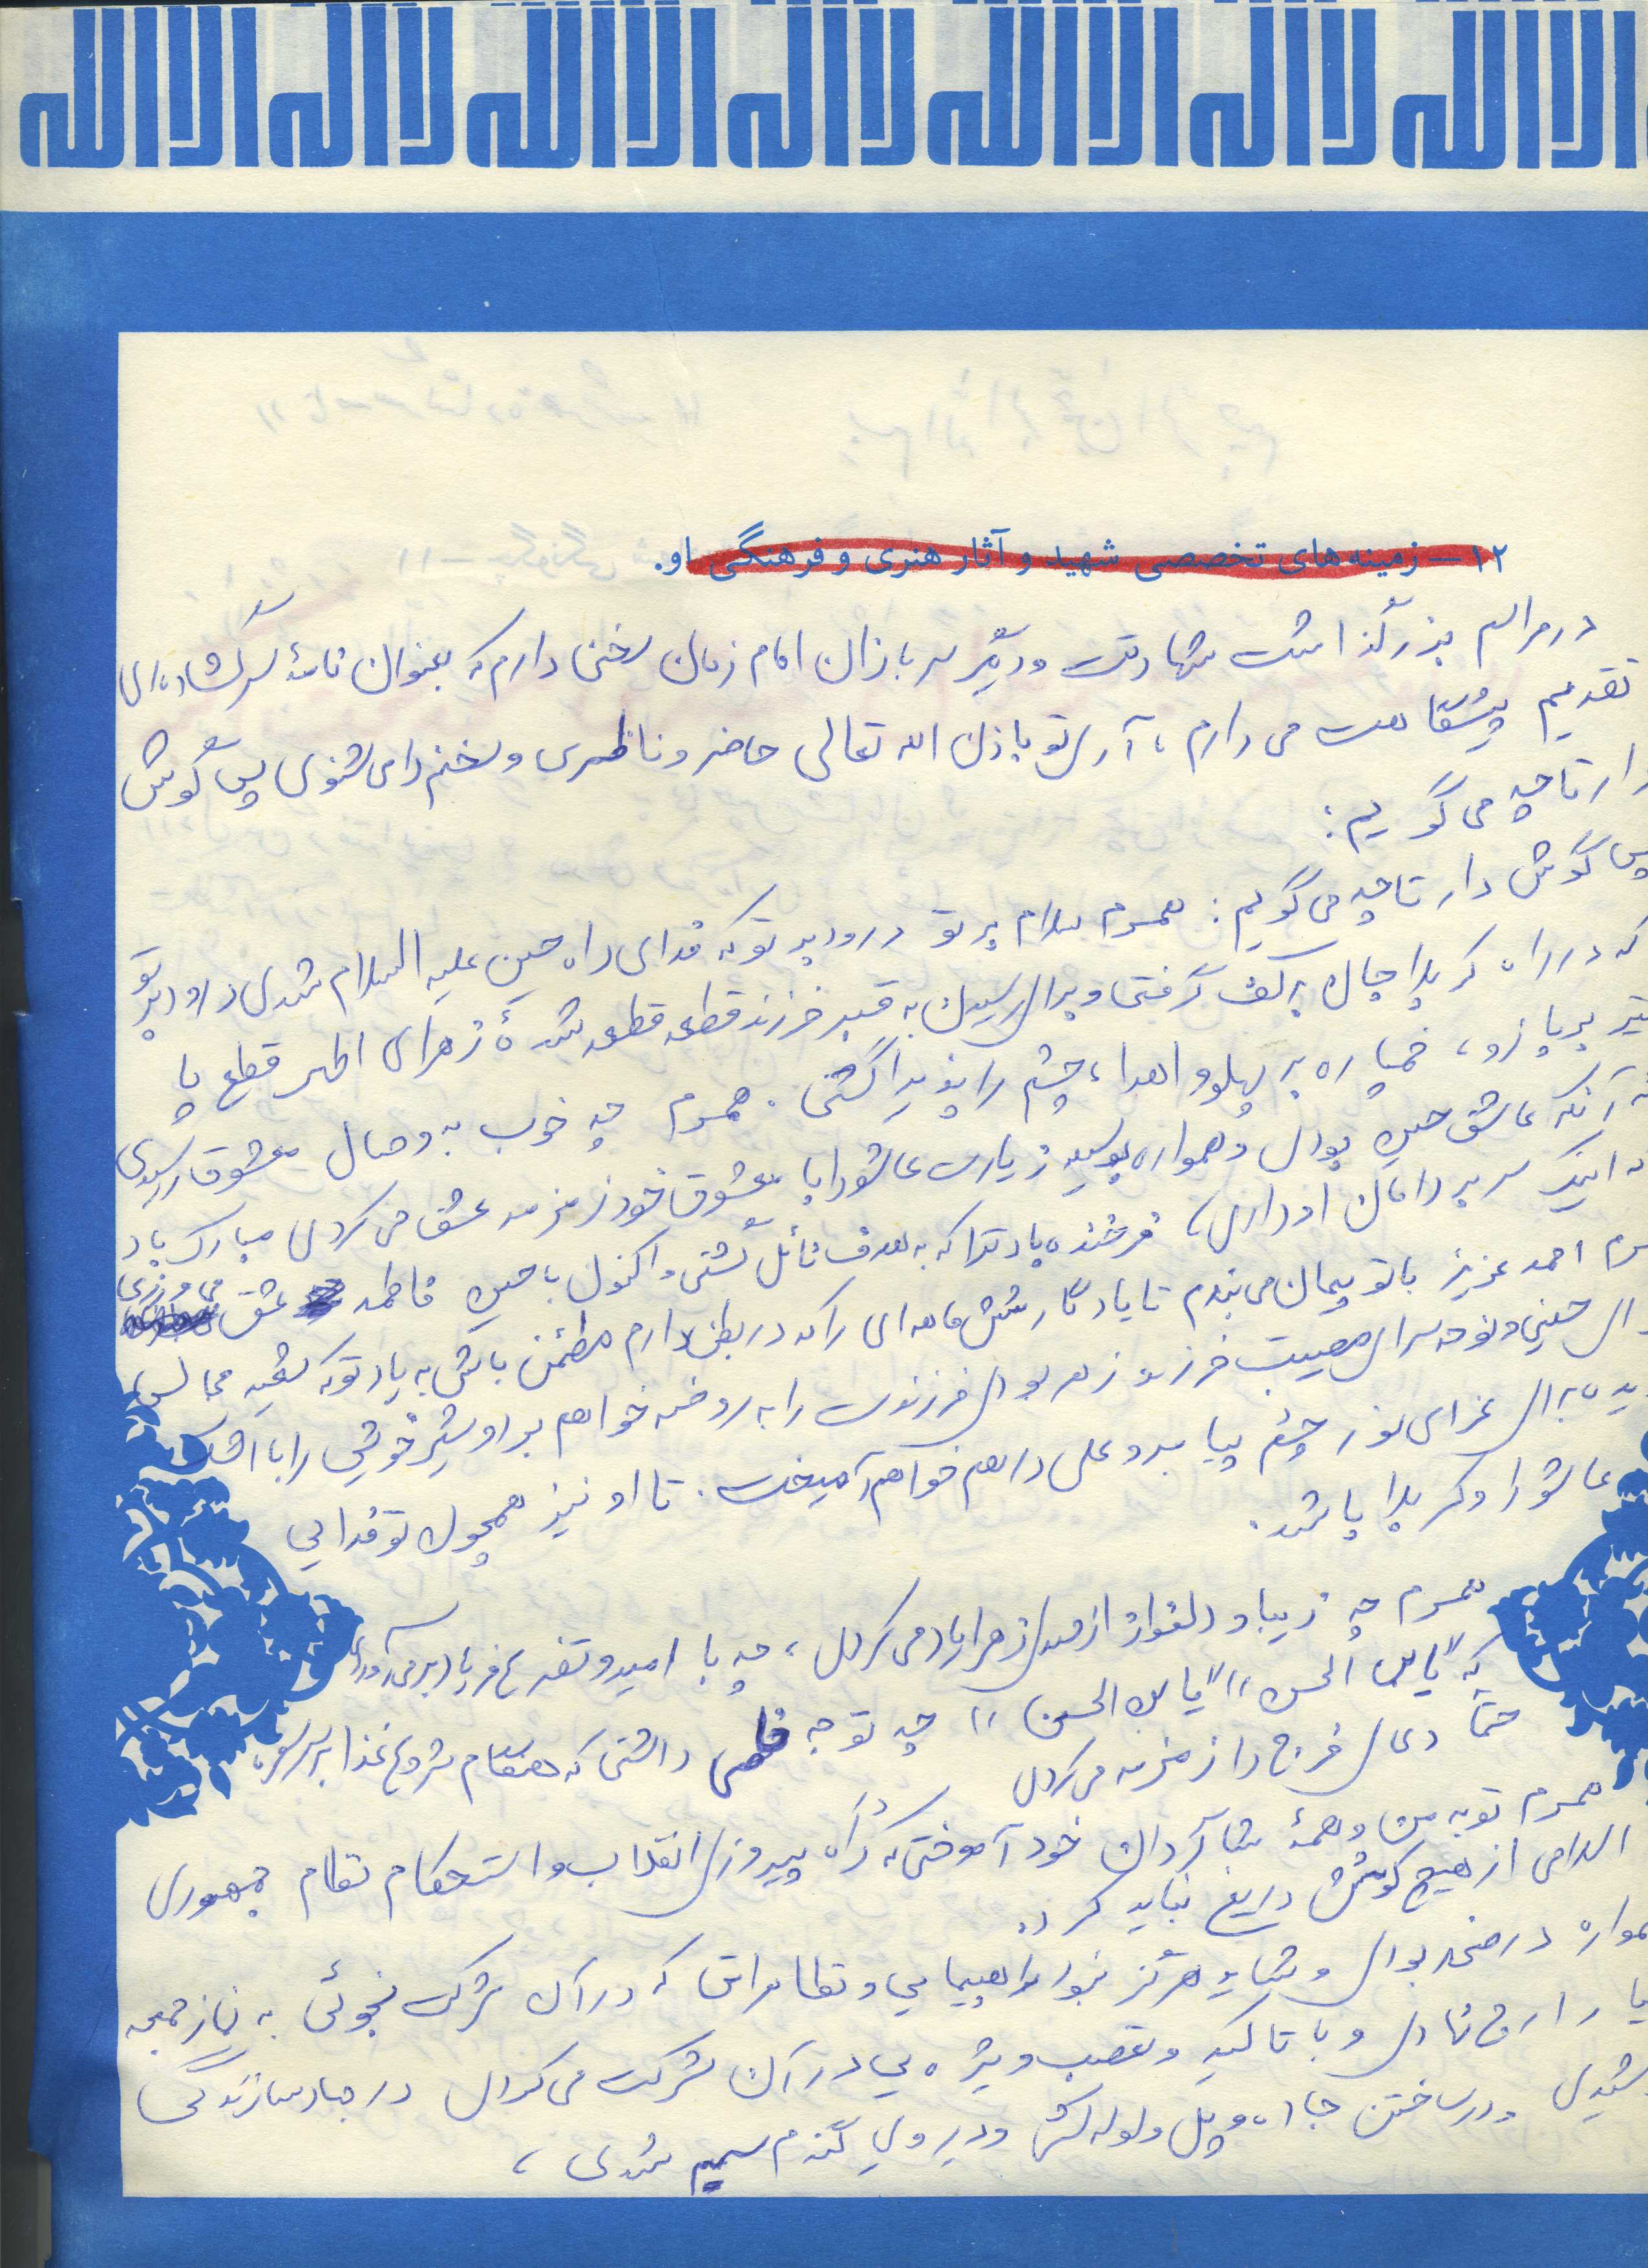 لا اله الا الله لا اله الا الله لا اله الا الله
۱۲ – زمینه های تخصصی شهید و آثار هنری و فرهنگی او.
در مراسم بزرگذاشت شهادتت و دیگر سربازان امام زمان سخنی دارم که بعنوان نامهٔ سرگشاده‌ای
تقدیم پیشگاهت می دارم ، آری تو باذن اله تعالی حاضر و ناظری و سخنم را می شنوی پس گوش
دار تا چه می گویم :
پس گوش دار تا چه می گویم : همسرم سلام بر تو درود بر تو که فدای راه حسین علیه السلام شدی درود بر تو
که در راه کربلا جان بر کف گرفتی و برای رسیدن به قبر فرزند قطعه قطعه شدهٔ زهرای اطهر قطع پا
تیر بر بازو ، خمپاره بر پهلو و اهداء چشم را پذیرا گشتی . همسرم چه خوب به وصال معشوق رسیدی
آنکه عاشق حسین بودی و همواره بوسیله زیارت عاشورا با معشوق خود زمزمه عشق می کردی مبارک باد
اینک سر بر دامان او داری ، فرخنده باد ترا که به هدف نائل گشتی و اکنون با حسین فاطمه عشق می ورزی
احمد عزیز با تو پیمان می بندم تا یادگار شش ماهه ای را که در بطن دارم مطمئن باش به یاد تو که شیفته مجالس
حسینی و نوحه سرای مصیبت فرزند زهرا بودی فرزندت را به روضه خواهم برد و شیر خویش را با اشک
برای عزای نور چشم پیامبر و علی در هم خواهم آمیخت . تا او نیز همچون تو فدایی
عاشورا و کربلا باشد .
همسرم چه زیبا و دلنواز از مهدی زهرا یاد می کردی ، چه با امید و تضرع فریاد بر می آوردی
که "یابن الحسن" "یابن الحسن" چه توجه خاصی داشتی که هنگام شروع غذا بر سر سفره
حتماً دعای فرج را زمزمه می کردی
همسرم تو به من و همهٔ شاگردان خود آموختی که در راه پیروزی انقلاب و استحکام نظام جمهوری
اسلامی از هیچ کوششی دریغ نباید کرد.
همواره در صحنه بودی و شاید هرگز نبود راهپیمایی و تظاهراتی که در آن شرکت نجوئی به نماز جمعه
ارج نهادی و با تاکید و تعصب ویژه یی در آن شرکت می کردی در جهاد سازندگی
و در ساختن جاده و پل و لوله کشی و دروی گندم سهیم شدی ،